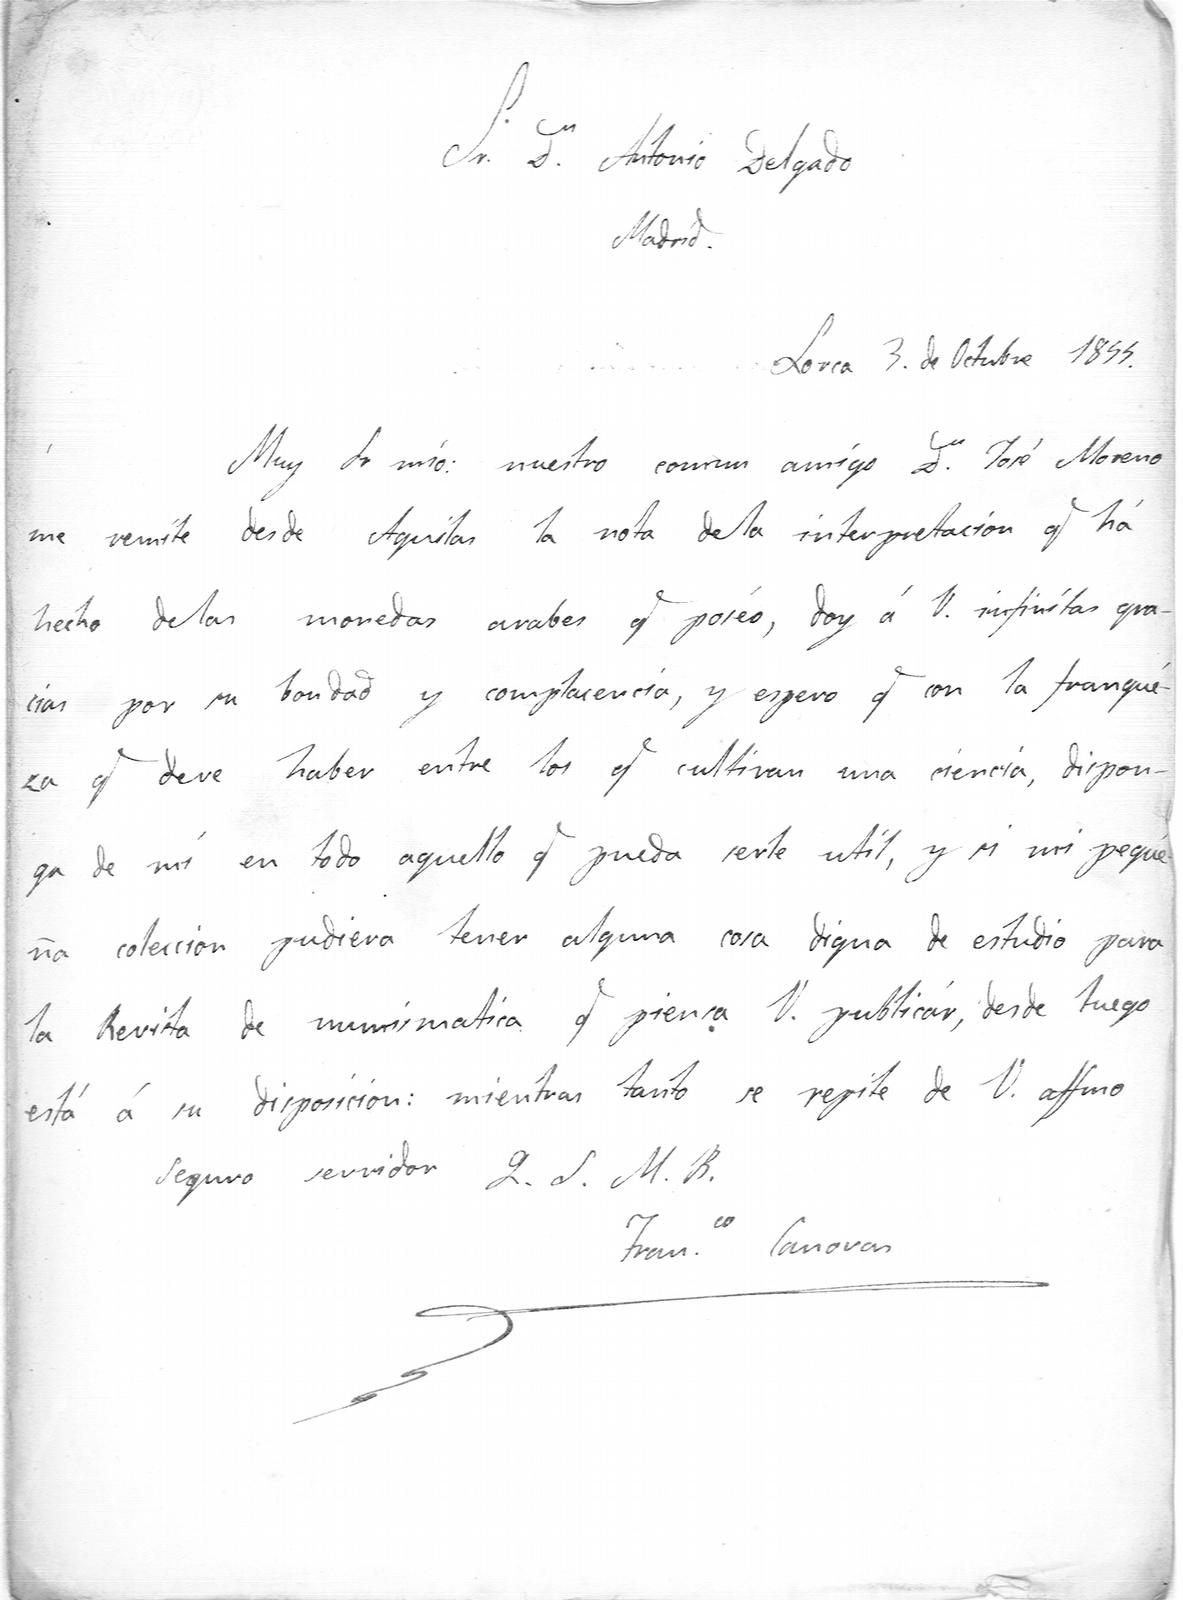 Sr. Dn. Antonio Delgado
Madrid.
Lorca 3. de Octubre 1855.
Muy Sr mio: nuestro comun amigo Dn. José Moreno
me remite desde Aguilas la nota de la interpretacion q há
hecho de las monedas arabes q poséo, doy á V. infinitas gra-
cias por su bondad y complacencia, y espero q con la franqué-
za q deve haber entre los q cultivan una ciencia, dispon-
ga de mí en todo aquello q pueda serle util, y si mi peque-
ña coleccion pudiera tener alguna cosa digna de estudio para
la Revista de numismatica q piensa V. publicár, desde luego
está á su disposicion: mientras tanto se repite de V. affmo
seguro servidor Q. S. M. B.
Fran.co Canovas